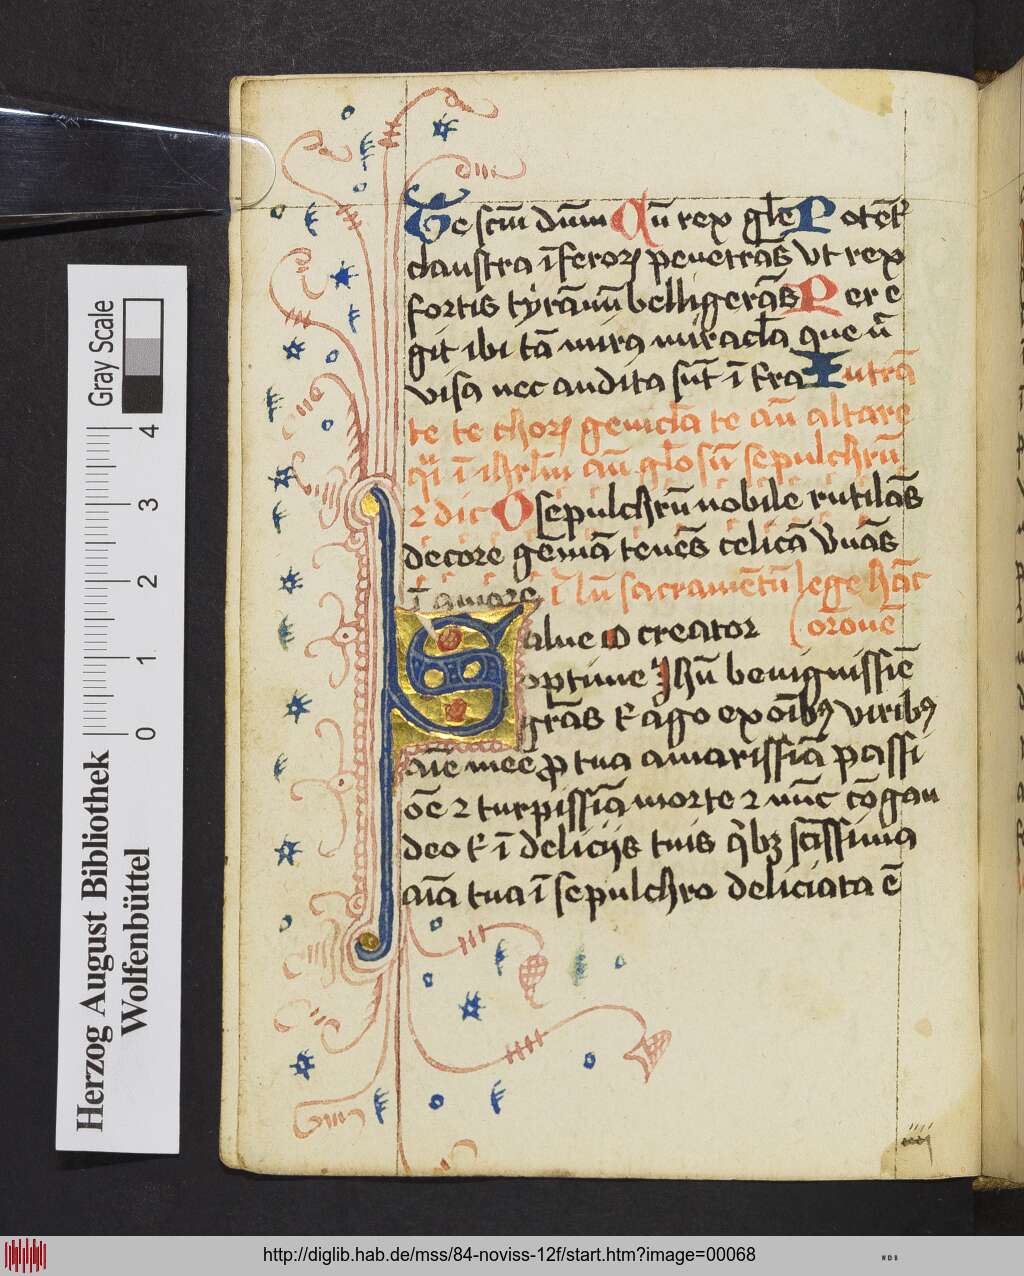 Te scm̄ dn̄m Cū rex gl̄e Potēt
claustra īferoꝝ penetras vt rex
fortis tyrānū belligerās Per e
git ibi tā mira miracl̄a que ū
visa nec audita sūt ī tra Intrā
te te choꝝ genicl̄a te an̄ altare
qͥ ī ihrl̄m an̄ gl̄osū sepulchrū
⁊ dic O sepulchrū nobile rutilās
decore gemā tenēs celicā
ī amore sacramētū lege hāc
alue o creator orōnē
optime Jhū benignissīe
grās t̄ ago ex oīb⁹ virib⁹
aīe mee ꝓ tua amarissīa passi
ōe ⁊ turpissīa morte ⁊ nūc cōgau
deo t̄ ī delicijs tuis qͥbꝫ scīssima
aīa tua ī sepulchro deliciata ē
Gray Scale
4
3
2
1
0
Herzog August Bibliothek
Wolfenbüttel
http://diglib.hab.de/mss/84-noviss-12f/start.htm?image=00068
WDB